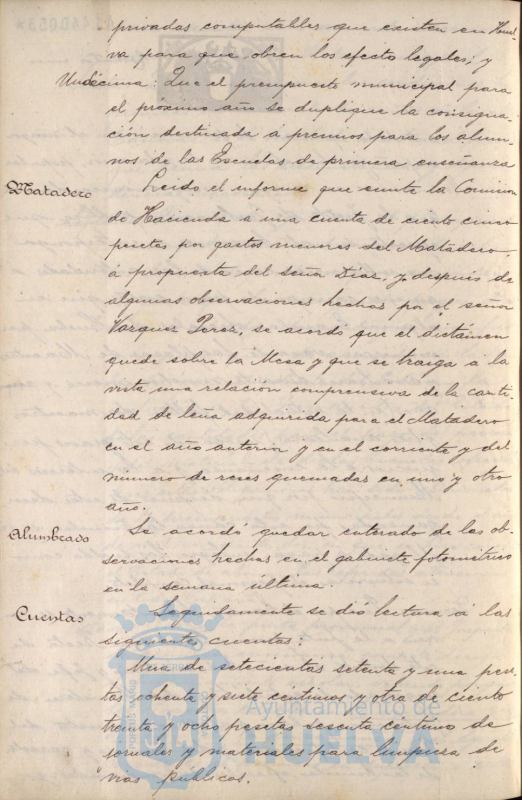 privadas computables que existen en Huel-
va para que obren los efecto legales; y
Undécima: Que el presupuesto municipal para
el próximo año se duplique la consigna-
ción destinada á premios para los alum-
nos de las Escuelas de primera enseñanza
Matadero
Leido el informe que emite la Comision
de Hacienda á una cuenta de ciento cinco
pesetas por gastos menores del Matadero,
á propuesta del señor Diaz, y despues de
algunas observaciones hechas por el señor
Vazquez Perez, se acordó que el dictámen
quede sobre la Mesa y que se traiga á la
vista una relación comprensiva de la canti-
dad de leña adquirida para el Matadero
en el año anterior y en el corriente y del
numero de reses quemadas en uno y otro
año.
Alumbrado
Se acordó quedar enterado de las ob-
servaciones hechas en el gabinete fotométrico
en la semana última.
Cuentas
Seguidamente se dió lectura á las
siguientes cuentas:
Una de setecientas setenta y una pese-
tas ochenta y siete céntimos y otra de ciento
treinta y ocho pesetas sesenta centimo de
jornales y materiales para limpieza de
vias publicas.
Ayuntamiento de
HUELVA